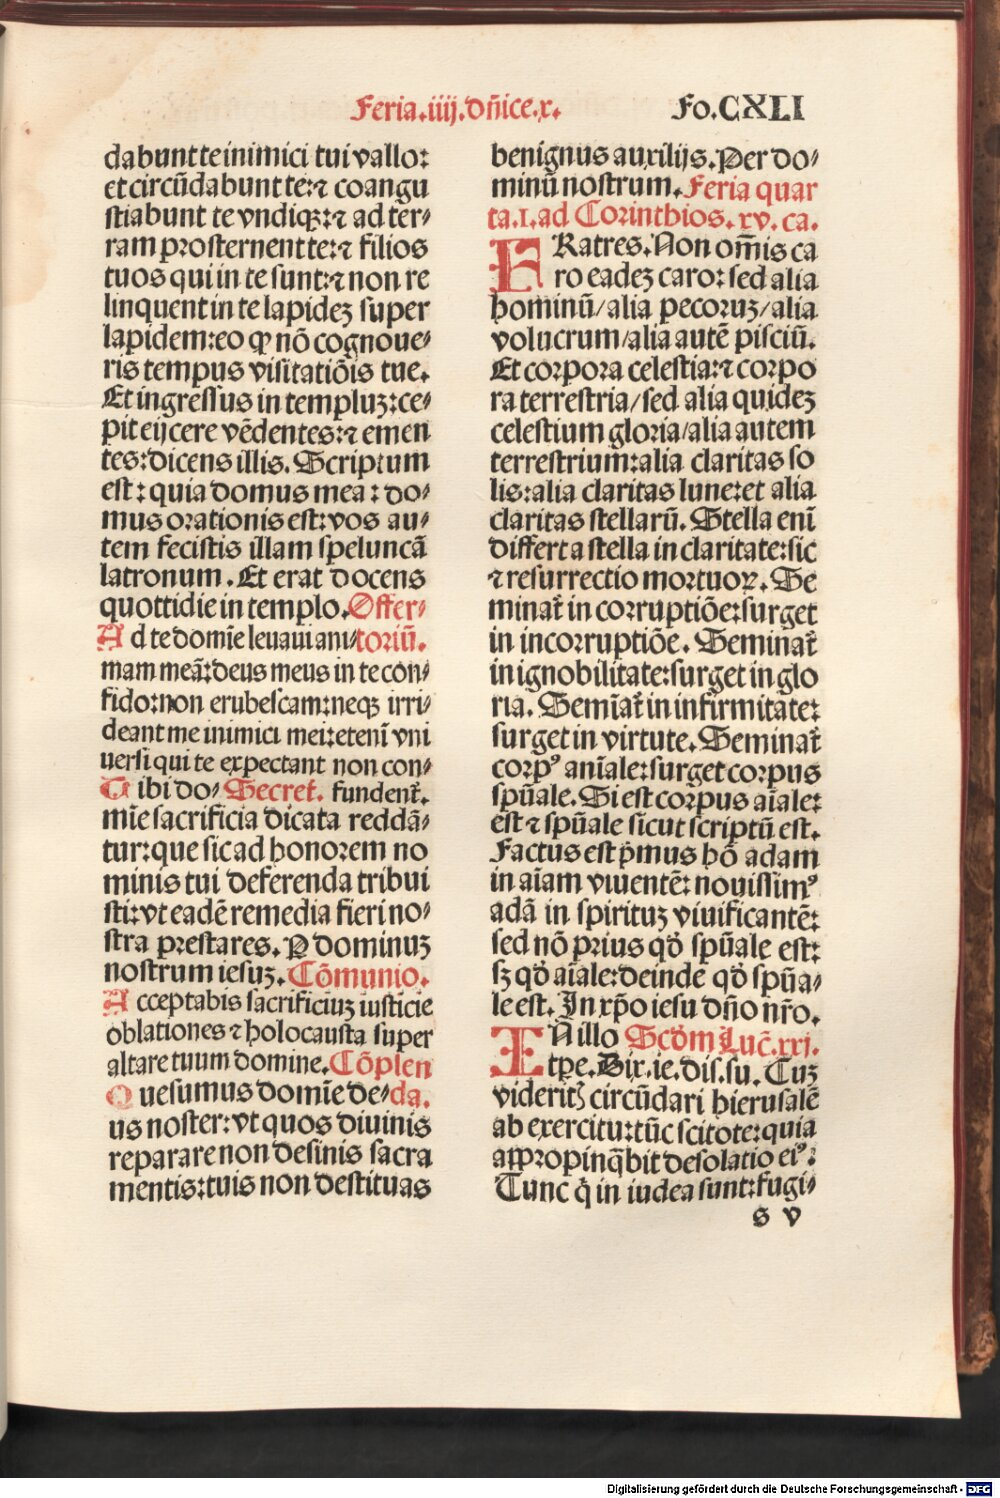 Feria.iiij.dñice.x. Fo.CXLI
dabunt te inimici tui vallo:
et circũdabunt te:⁊ coangu
stiabunt te vndiqꝫ:⁊ ad ter⸗
ram prosternent te:⁊ filios
tuos qui in te sunt:⁊ non re
linquent in te lapidez super
lapidem:eo ꝙ nõ cognoue⸗
ris tempus visitatiõis tue.
Et ingressus in templuz:ce⸗
pit eijcere vẽdentes:⁊ emen
tes:dicens illis. Scriptum
est: quia domus mea: do⸗
mus orationis est:vos au⸗
tem fecistis illam speluncã
latronum. Et erat docens
quottidie in templo. Offer⸗
Ad te domĩe leuaui ani⸗ toriũ.
mam meã:deus meus in te con⸗
fido:non erubescam:neqꝫ irri⸗
deant me inimici mei:etenĩ vni
uersi qui te expectant non con⸗
Tibi do⸗ Secret̃. fundent̃.
mĩe sacrificia dicata reddã⸗
tur:que sic ad honorem no
minis tui deferenda tribui
sti:vt eadẽ remedia fieri no⸗
stra prestares. Ꝑ dominuz
nostrum iesuz. Cõmunio.
Acceptabis sacrificiuz iusticie
oblationes ⁊ holocausta super
altare tuum domine. Cõplen
Quesumus domĩe de⸗ da.
us noster: vt quos diuinis
reparare non desinis sacra
mentis:tuis non destituas
benignus auxilijs. Per do⸗
minũ nostrum. Feria quar
ta.I. ad Corinthios. xv. ca.
FRatres. Non om̃is ca
ro eadez caro: sed alia
hominũ/alia pecoruz/alia
volucrum/alia autẽ pisciũ.
Et corpora celestia:⁊ corpo
ra terrestria/sed alia quidez
celestium gloria/alia autem
terrestrium:alia claritas so
lis:alia claritas lune:et alia
claritas stellarũ. Stella enĩ
differt a stella in claritate:sic
⁊ resurrectio mortuoꝝ. Se
minat̃ in corruptiõe:surget
in incorruptiõe. Seminat̃
in ignobilitate:surget in glo
ria. Semĩat̃ in infirmitate:
surget in virtute. Seminat̃
corpꝰ anĩale:surget corpus
spũale. Si est corpus aĩale:
est ⁊ spũale sicut scriptũ est.
Factus est p̃mus hõ adam
in aĩam viuentẽ: nouissimꝰ
adã in spirituz viuificantẽ:
sed nõ prius qð spũale est:
sꝫ qð aĩale:deinde qð spũa⸗
le est. In xp̃o iesu dño nr̃o.
IN illo Scðm Luc̃. xxi.
tꝑe. Dix. ie. dis. su. Cuz
videritꝭ circũdari hierusalẽ
ab exercitu:tũc scitote:quia
appropinq̃bit desolatio eiꝰ:
Tunc q̃ in iudea sunt:fugi⸗
s v
Digitalisierung gefördert durch die Deutsche Forschungsgemeinschaft - DFG